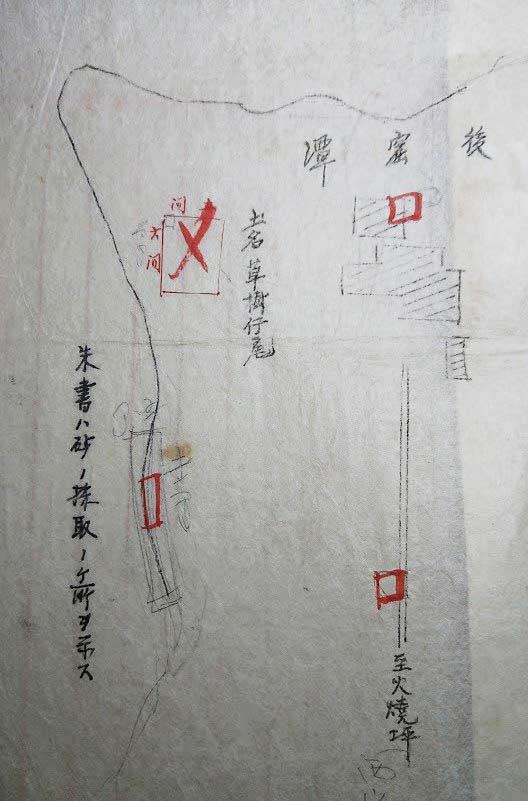 後窰潭
土名草樹仔尾
間
六間
至火燒坪
朱書ハ砂ノ採取ノ箇所ヲ示ス